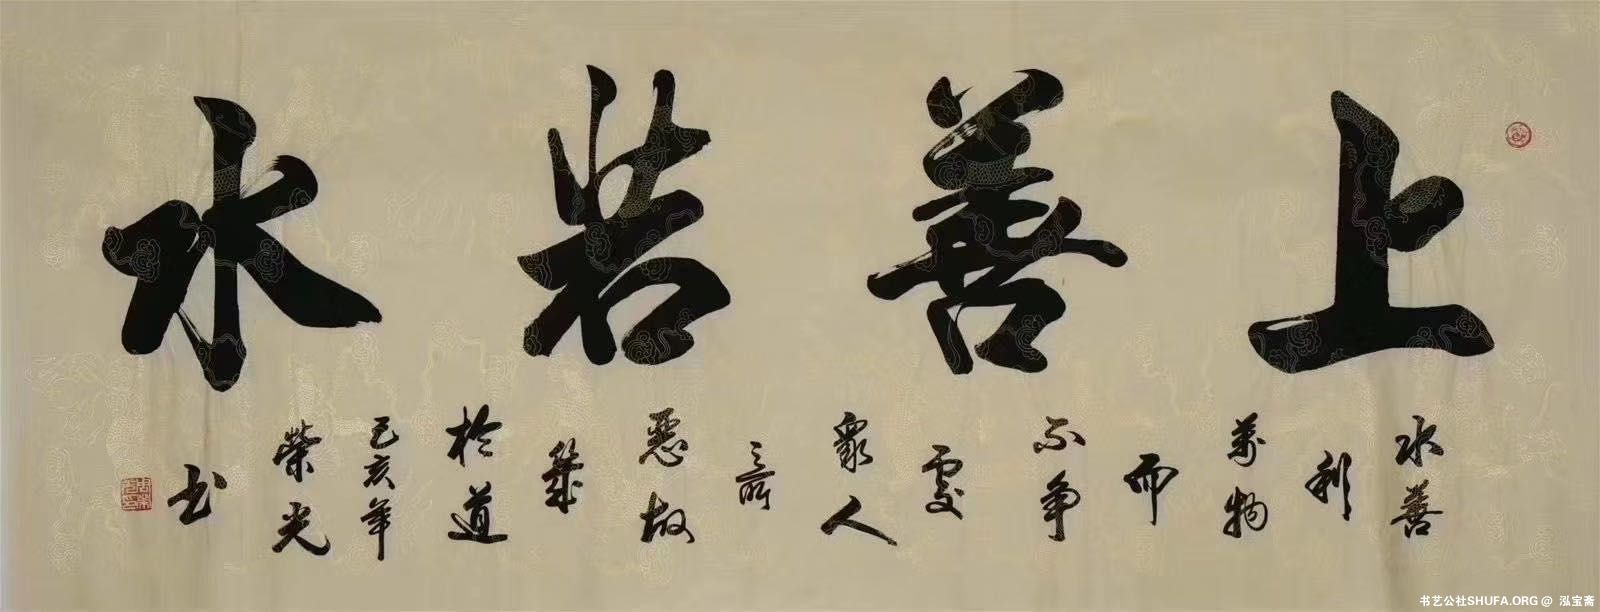 上善若水
水善
利
萬物
而
不争
處
衆人
之所
惡故
幾
於道
己亥年
榮光
书
书艺公社SHUFA.ORG @ 泓宝斋